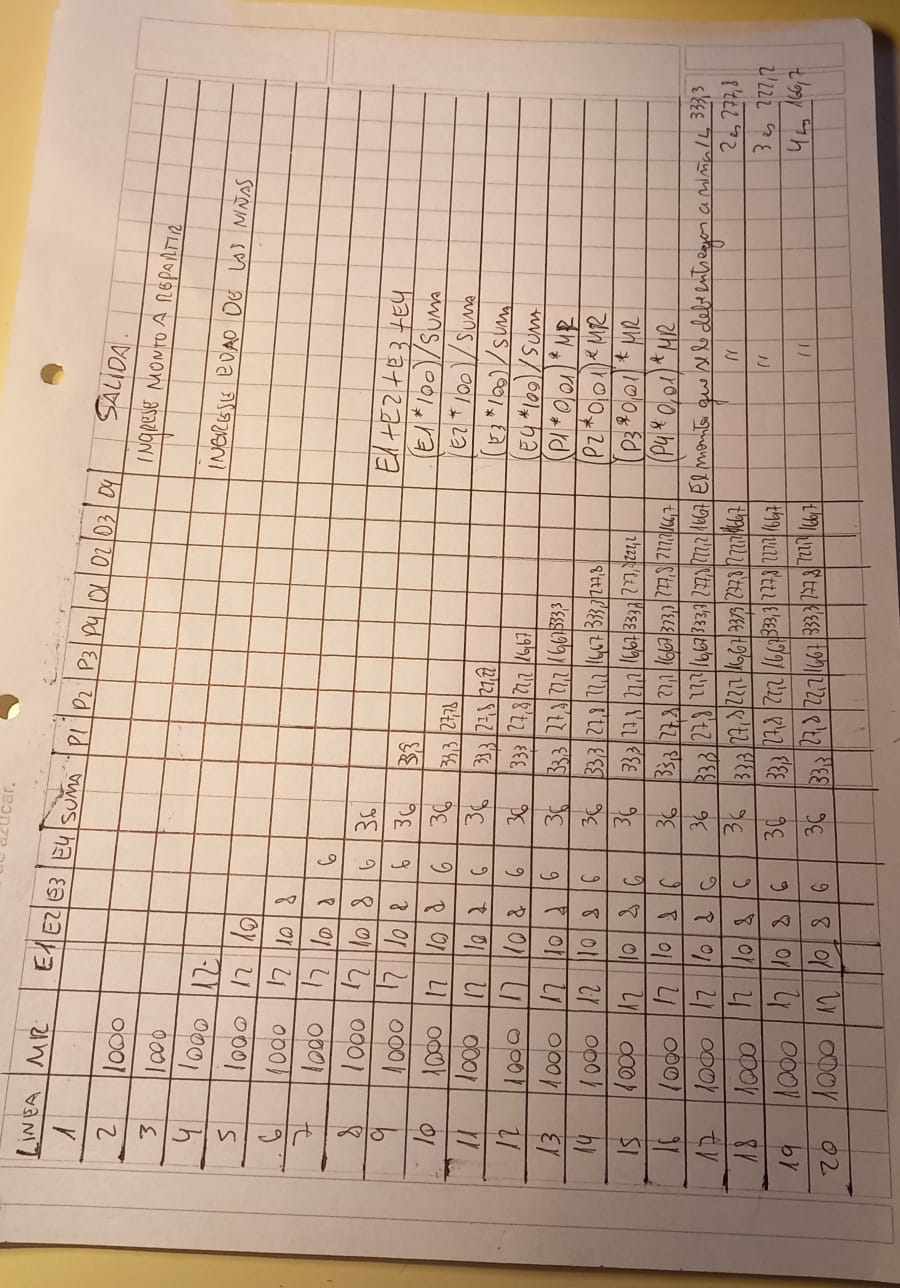 de azúcar.
LINEA MR E1 E2 E3 E4 SUMA P1 P2 P3 P4 D1 D2 D3 D4 SALIDA.
1 INGRESE MONTO A REPARTIR
2 1000
3 1000 INGRESE EDAD DE LAS NIÑAS
4 1000 12
5 1000 12 10
6 1000 12 10 8
7 1000 12 10 8 6
8 1000 12 10 8 6 36 E1+E2+E3+E4
9 1000 12 10 8 6 36 33,3 (E1*100)/SUMA
10 1000 12 10 8 6 36 33,3 27,8 (E2*100)/SUMA
11 1000 12 10 8 6 36 33,3 27,8 22,22 (E3*100)/SUMA
12 1000 12 10 8 6 36 33,3 27,8 22,2 16,67 (E4*100)/SUMA
13 1000 12 10 8 6 36 33,3 27,8 22,2 16,67 333,3 (P1*0,01)*MR
14 1000 12 10 8 6 36 33,3 27,8 22,2 16,67 333,3 277,8 (P2*0,01)*MR
15 1000 12 10 8 6 36 33,3 27,8 22,2 16,67 333,3 277,8 222,2 (P3*0,01)*MR
16 1000 12 10 8 6 36 33,3 27,8 22,2 16,67 333,3 277,8 222,2 166,7 (P4*0,01)*MR
17 1000 12 10 8 6 36 33,3 27,8 22,2 16,67 333,3 277,8 222,2 166,7 El monto que se le debe entregar a niña 1 ↳ 333,3
18 1000 12 10 8 6 36 33,3 27,8 22,2 16,67 333,3 277,8 222,2 166,7 " 2 ↳ 277,8
19 1000 12 10 8 6 36 33,3 27,8 22,2 16,67 333,3 277,8 222,2 166,7 " 3 ↳ 222,2
20 1000 12 10 8 6 36 33,3 27,8 22,2 16,67 333,3 277,8 222,2 166,7 " 4 ↳ 166,7